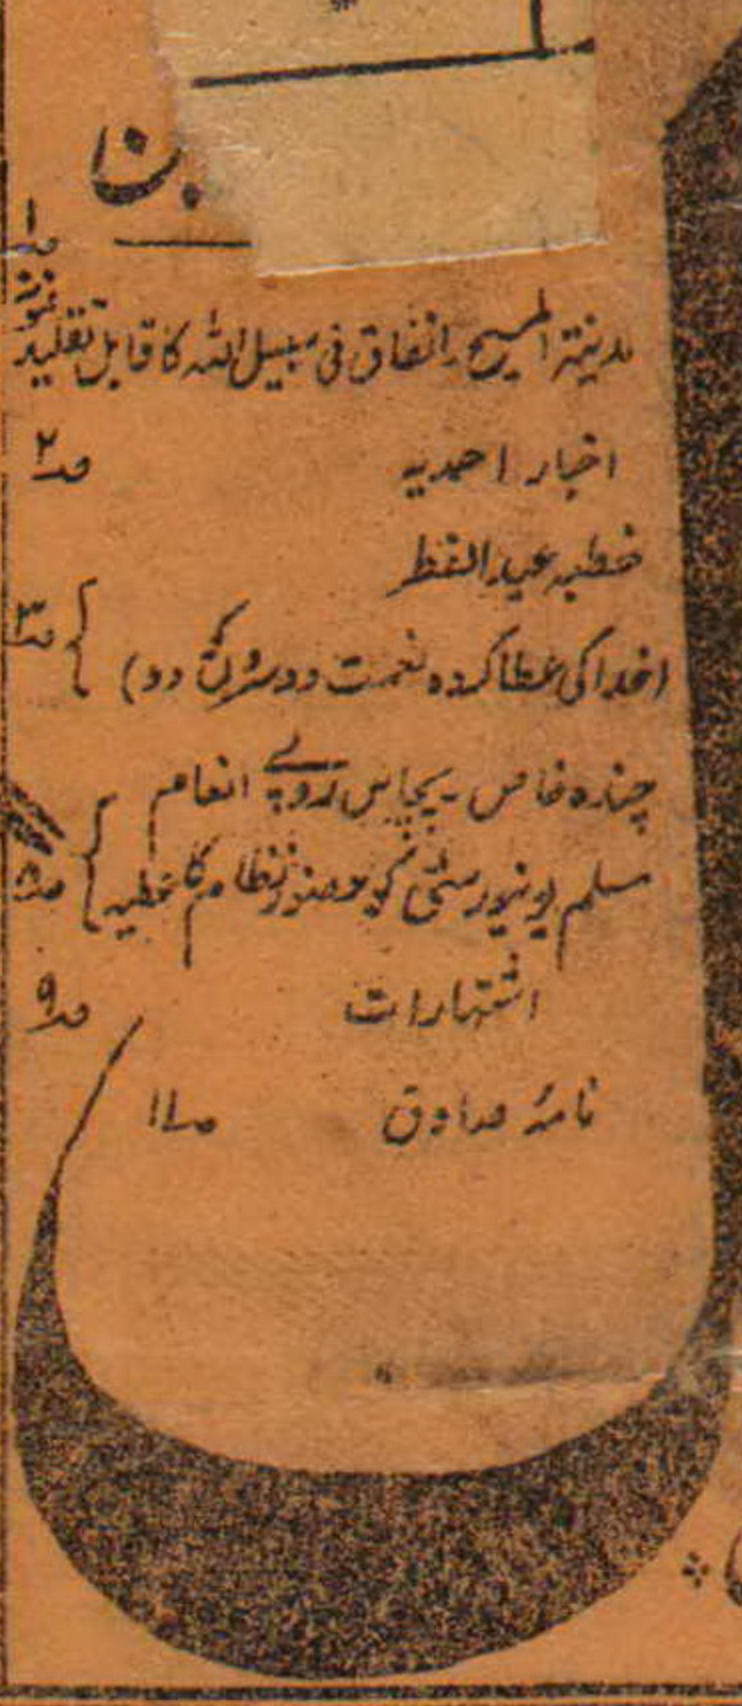 مدینۃ المسیح۔ انفاق فی سبیل اللہ کا قابل تقلید نمونہ ص۱
اخبار احمدیہ ص۲
خطبہ عید الفطر
(خدا کی عطا کردہ نعمت دوسروں کو دو) ص۳
چندہ خاص۔ پچاس روپے انعام
مسلم یونیورسٹی کو حضور نظام کا عطیہ ص۸
اشتہارات ص۹
نامۂ صادق ص۱۱